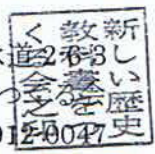 新しい歴史
教科書をつ
くる会之印
263
012-0047